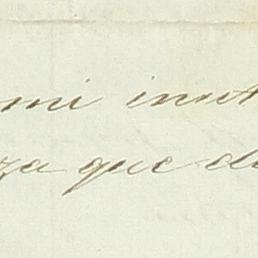 mi inut
za que de